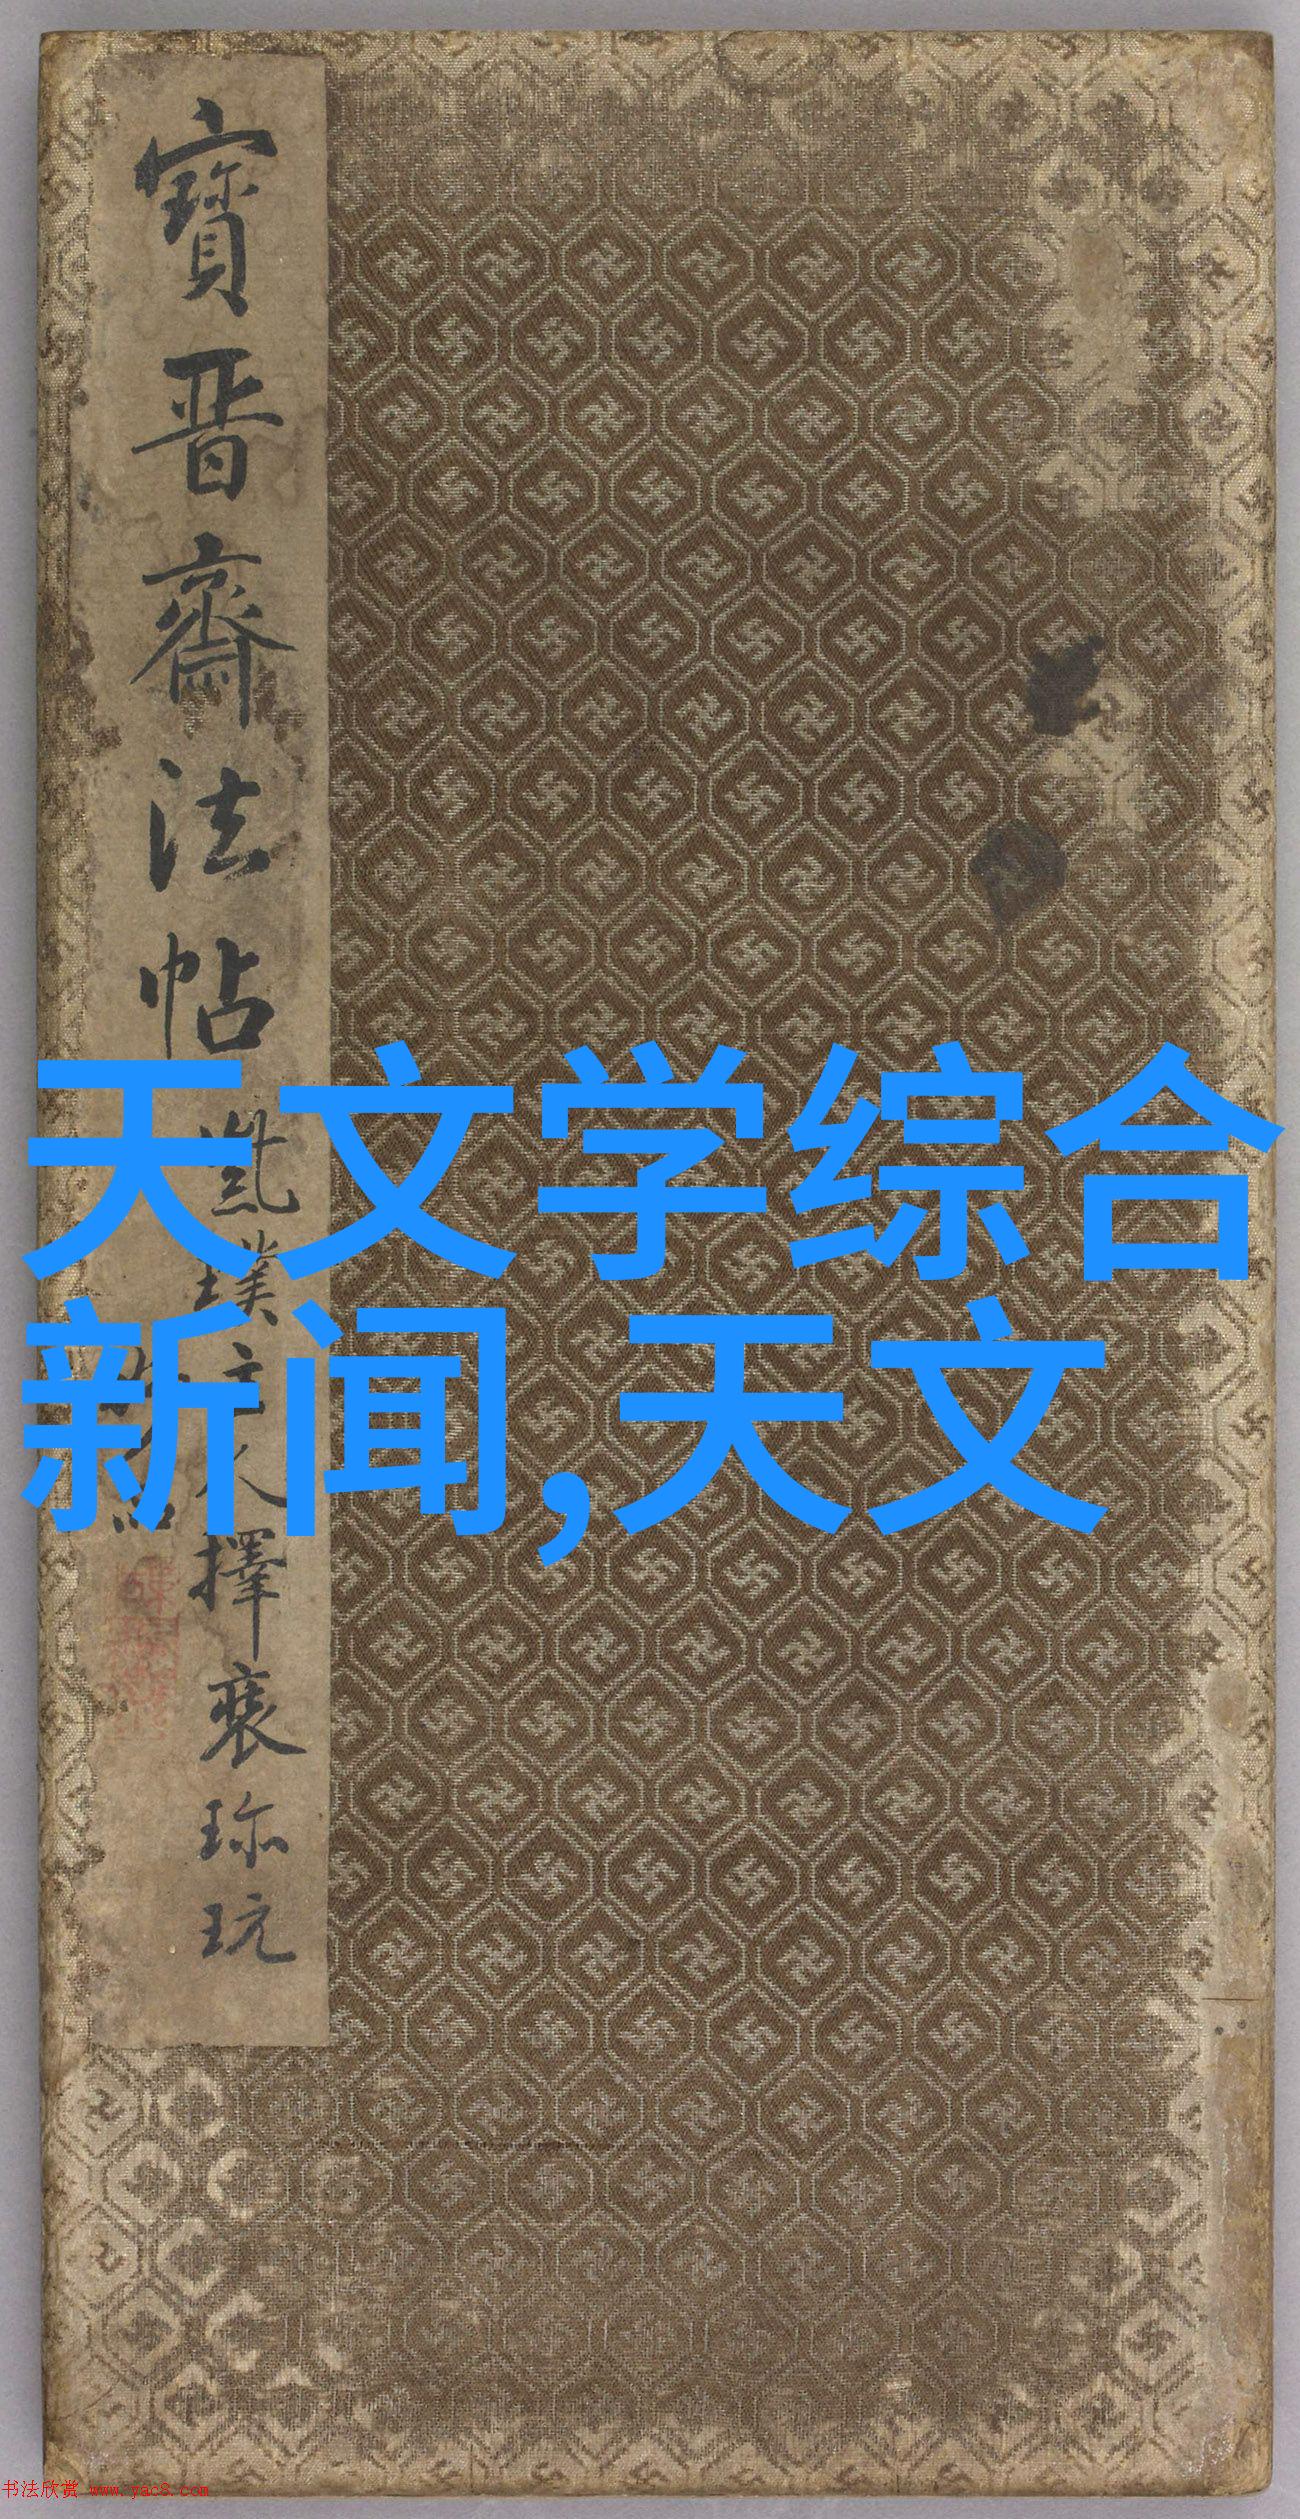 寶晋齋法帖
璞主人擇裒珎玩
天文学综合
新闻,天文
书法欣赏 www.yac8.com